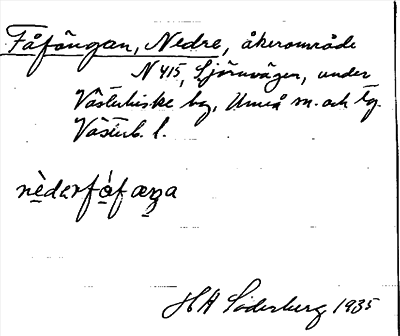 Fåfängan, Nedre, åkerområde
N 415, Sjöruvägen, under
Västerhiske by, Umeå sn. och tg.
Västerb. l.
nèdərfàfæŋa
HA Söderberg 1935